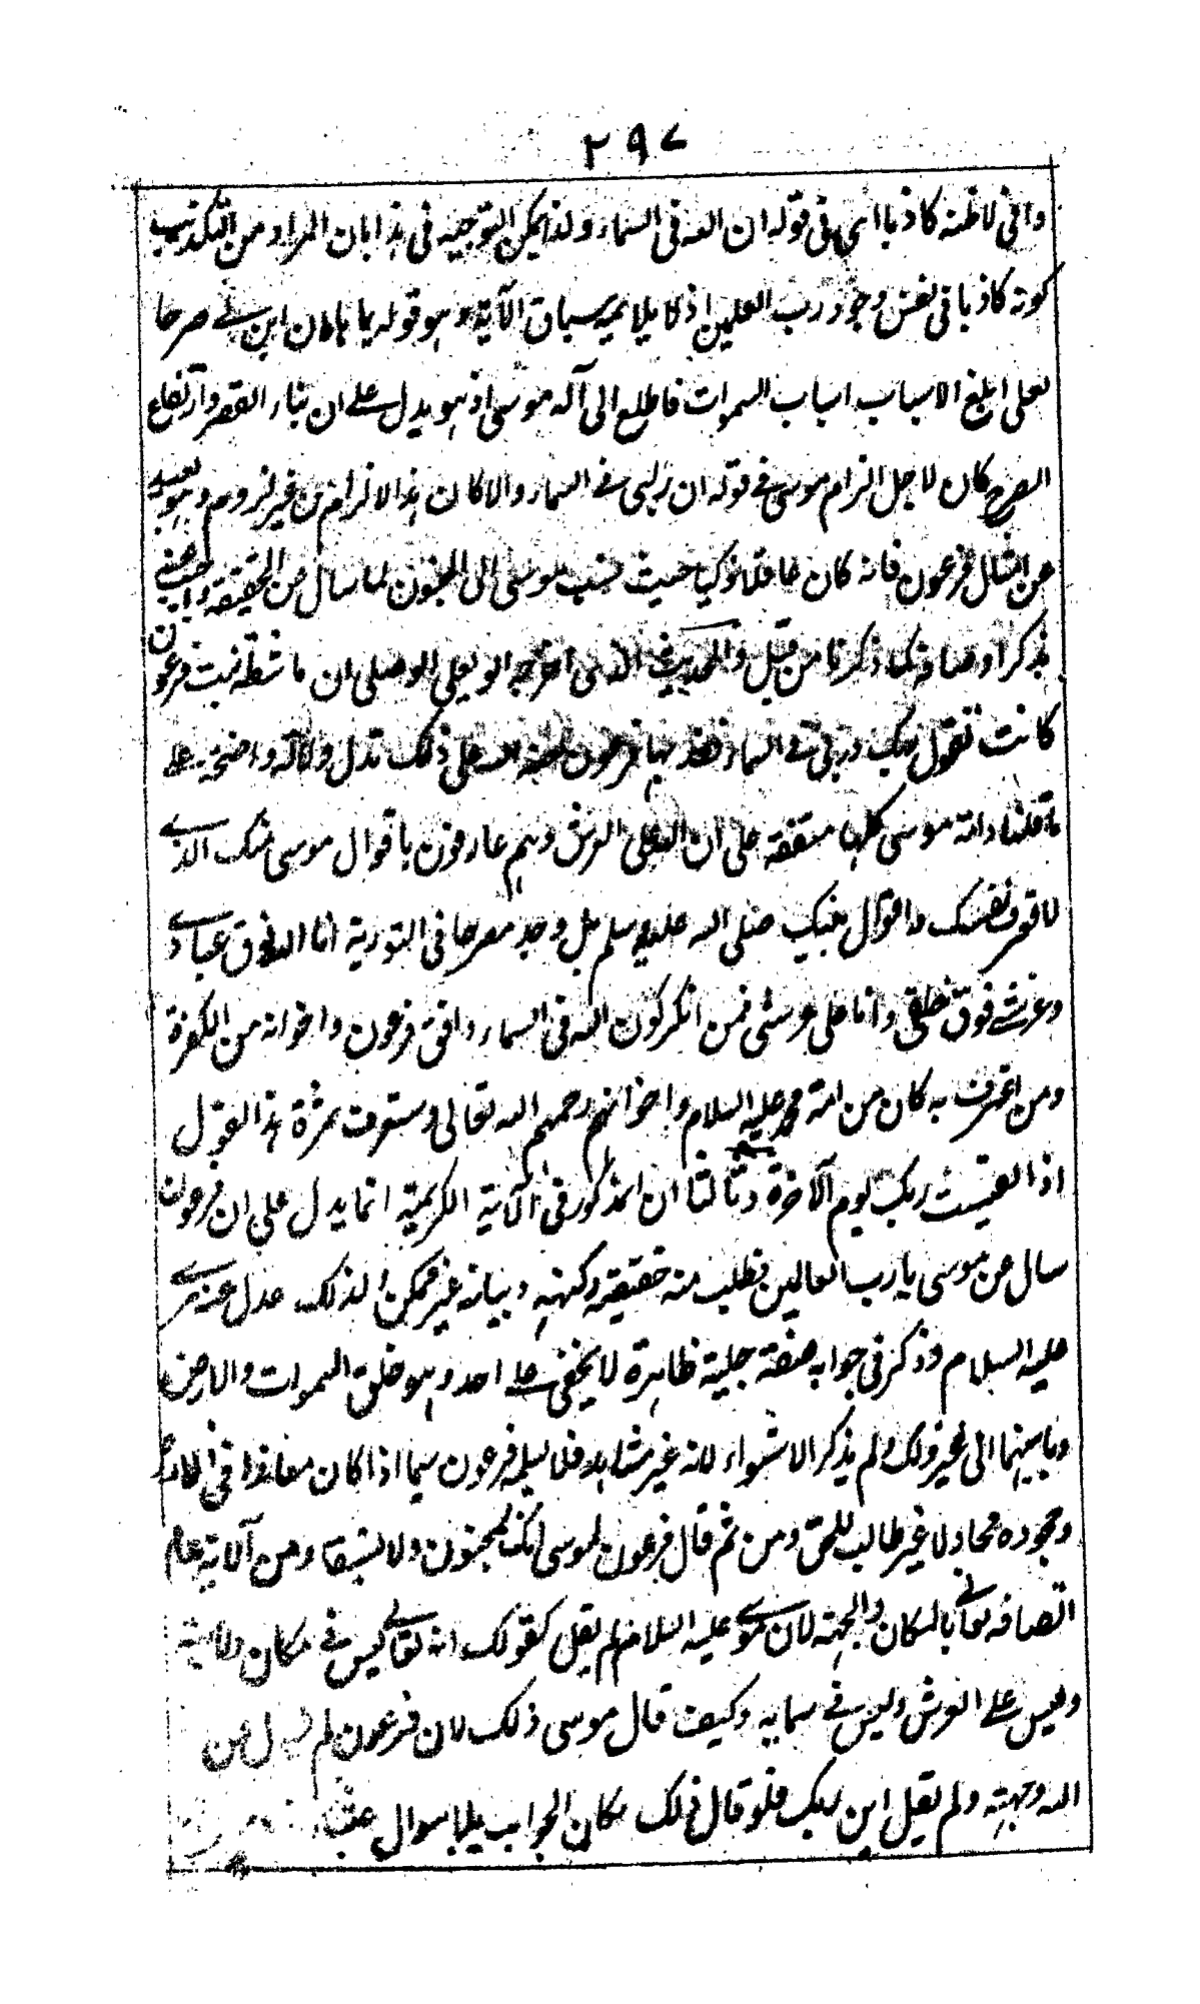 ٢٩٧
واني لاظنه كاذبا اي في قوله ان الله في السماء ولا يمكن التوجيه في هذا بان المراد من التكذيب
كونه كاذبا في نفس وجود رب العلمين اذ لا يلايمه سياق الآية وهو قوله يا هامان ابن لي صرحا
لعلى ابلغ الاسباب اسباب السموات فاطلع الى آله موسى اذ هو يدل على ان بناء القصر وارتفاع
الصرح كان لاجل الزام موسى في قوله ان ربي في السماء والا كان هذا الالزام من غير لزوم وهو بعيد
من امثال فرعون فانه كان عاقلا ذكيا حيث نسب موسى الى الجنون لما سال عن الحقيقة واجيب عنه
بذكر اوصافه كما ذكرنا من قبل والحديث الذي اخرجه ابو يعلى الموصلى ان ماشطة بنت فرعون
كانت تقول ربك وربي في السماء فعذبها فرعون لعنه الله على ذلك تدل دلالة واضحة على
ما قلنا وامة موسى كلها متفقة على ان الله على العرش وهم عارفون باقوال موسى منك الذي
لا تعرف نفسك واقوال نبيك صلى الله عليه وسلم بل وجد مصرحا في التورية انا الله فوق عبادي
وعرشي فوق خلقي وانا على عرشي فمن انكر كون الله في السماء وافق فرعون واخوانه من الكفرة
ومن اعترف به كان من امة محمد عليه السلام واخوانهم رحمهم الله تعالى وستعرف ثمرة هذا القول
اذا لقيت ربك يوم الآخرة وثالثا ان المذكور في الآية الكريمة انما يدل على ان فرعون
سال عن موسى يا رب العالمين فطلب منه حقيقته وكنهه وبيانه غير ممكن لذلك عدل عنه موسى
عليه السلام وذكر في جوابه صفة جلية ظاهرة لا يخفى على احد وهو خلق السموات والارض
وما بينهما الى غير ذلك ولم يذكر الاستواء لانه غير مشاهد فلا يسلمه فرعون سيما اذا كان معاندا في
وجحوده مجادلا غير طالب للحق ومن ثم قال فرعون لموسى انك لمجنون ولا يستفاد من الآية عدم
اتصافه تعالى بالمكان والجهة لان موسى عليه السلام لم يقل كقولك انه تعالى ليس في مكان ولا جهة
وليس على العرش وليس في سمايه وكيف قال موسى ذلك لان فرعون لم يسال عن
الله وجهته ولم يقل اين ربك فلو قال ذلك لكان الجواب بلا سوال